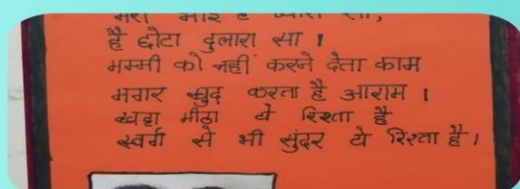 है छोटा दुलारा सा ।
मम्मी को नहीं करने देता काम
मगर खुद करता है आराम ।
खट्टा मीठा ये रिश्ता है
स्वर्ग से भी सुंदर ये रिश्ता है।